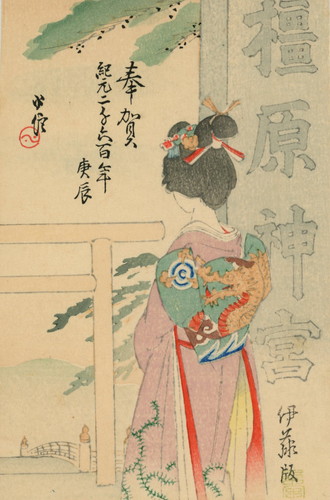 橿原神宮
奉賀
紀元二千六百年
庚辰
伊藤版